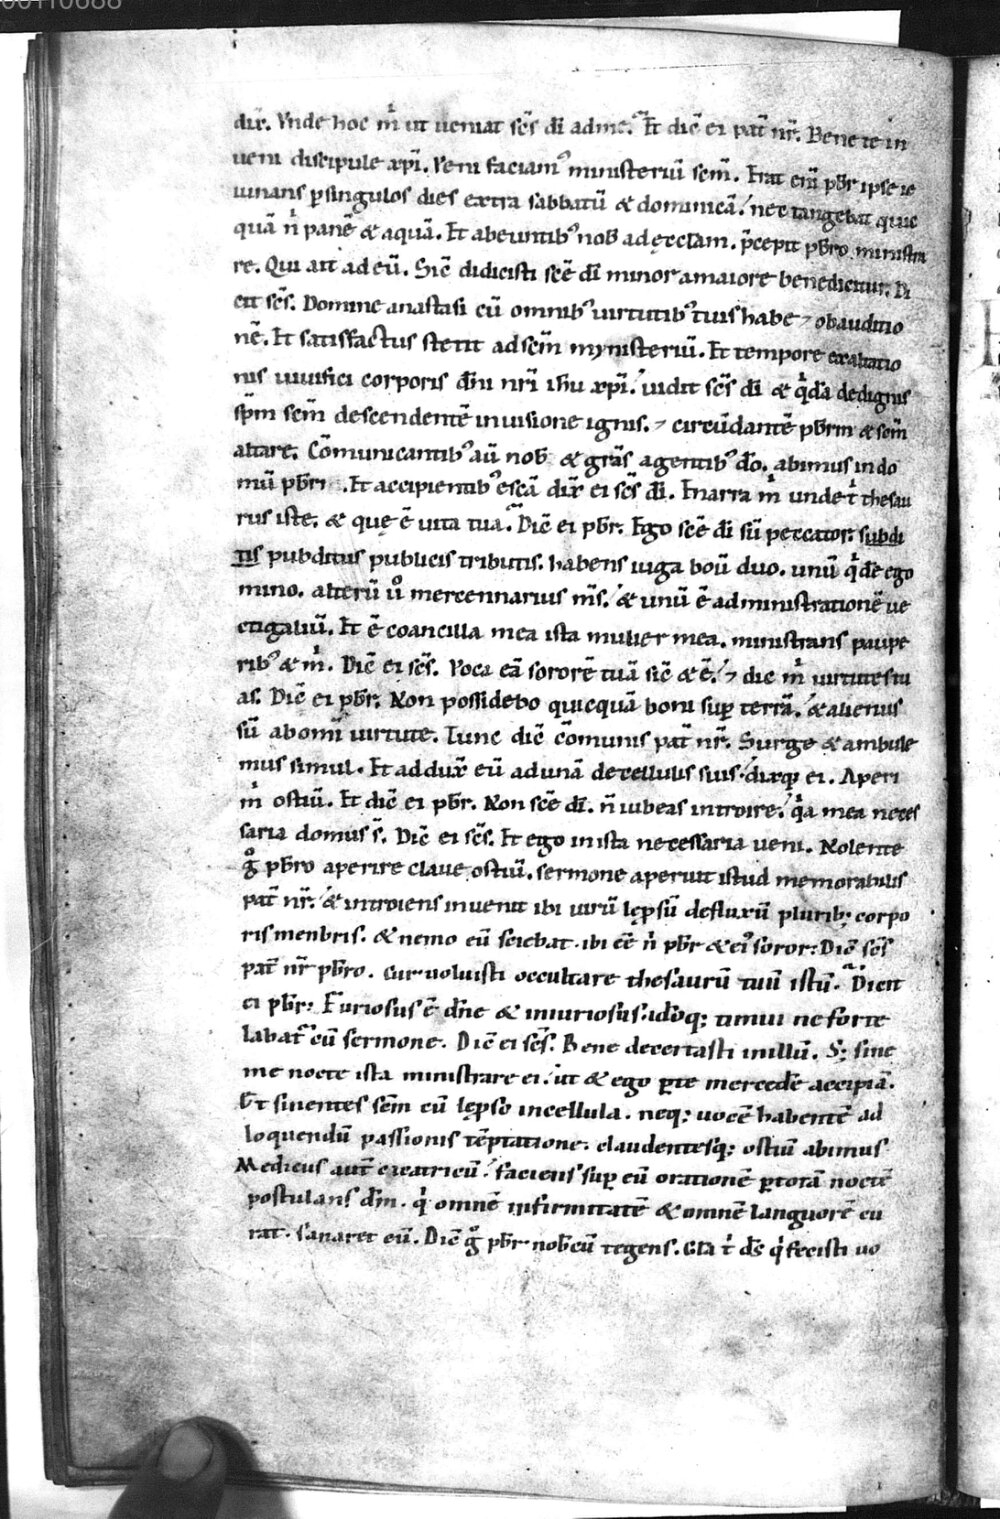 00110688
dix̄. Vnde hoc m̊ ut ueniat sc̄s dī ad me? Et dic̄ ei pat̄ nr̄. Bene te in
ueni discipule xp̄i. Veni faciam᾽ ministeriū sc̄m. Erat eni᷑ pb̄r ipse ie
iunans p singulos dies extra sabbatū & dominicā. nec tangebat quic
quā n̊ panē & aquā. Et abeuntib᾽ nob̄ ad ęcclam. p̄cepit pb̄ro ministra
re. Qui ait ad eū. Sic̄ didicisti sc̄e dī minor a maiore benedicitur. Di
cit sc̄s. Domine anastasi cū omnib᾽ uirtutib᾽ tuis habe ⁊ obauditio
nē. Et satisfactus stetit ad sc̄m mynisteriū. Et tempore exaltatio
nis uiuifici corporis dn̄i nr̄i ih̄u xp̄i. uidit sc̄s dī & q̊dā de dignis
sp̄m sc̄m descendentē in uisione ignis. ⁊ circūdantē pb̄rm & sc̄m
altare. Cōmunicantib᾽ aū nob̄ & grās agentib᾽ dō. abimus in do
mū pb̄ri. Et accipientib᾽ escā dix̄ ei sc̄s dī. Enarra m̊ unde t̊ thesau
rus iste. & quę ē uita tua? Dic̄ ei pb̄r. Ego sc̄e dī sū peccator. subdi
tis pubditus publicis tributis. habens iuga boū duo. unū q̊dē ego
mino. alterū ů mercennarius m̄s. & unū ē ad ministrationē ue
ctigaliū. Et ē coancilla mea ista mulier mea. ministrans paupe
rib᾽ & m̊. Dic̄ ei sc̄s. Voca eā sororē tuā sic̄ & ē. ⁊ dic m̊ uirtutes tu
as. Dic̄ ei pb̄r. Non possidebo quicquā boni sup terrā. & alienus
sū ab omī uirtute. Tunc dic̄ cōmunis pat̄ nr̄. Surge & ambule
mus simul. Et addux̄ eū ad unā de cellulis suis. dixq; ei. Aperi
m̊ ostiū. Et dic̄ ei pb̄r. Non sc̄e dī. n̄ iubeas introire. q̊a mea neces
saria domus ē. Dic̄ ei sc̄s. Et ego in ista necessaria ueni. Nolente
g̊ pb̄ro aperire claue ostiū. sermone aperuit istud memorabilis
pat̄ nr̄. & introiens inuenit ibi uirū lęp̄sū defluxū plurib; corpo
ris menbris. & nemo eū sciebat ibi eē n̊ pb̄r & ei᾽ soror. Dic̄ sc̄s
pat̄ nr̄ pb̄ro. Cur uoluisti occultare thesaurū tuū istū? Dicit
ei pb̄r. Furiosus ē dn̄e & iniuriosus. idōq; timui ne forte
labat̄ eū sermone. Dic̄ ei sc̄s. Bene decertasti in illū. S; sine
me nocte ista ministrare ei. ut & ego p te mercedē accipiā.
Et sinentes sc̄m cū lęp̄so in cellula. neq; uocē habentē ad
loquendū passionis tēptatione. claudentesq; ostiū abimus
Medicus aut̄ cicatricū. faciens sup eū orationē p totā noctē
postulans dn̄m. q̊ omnē infirmitatē & omnē languorē cu
rat. sanaret eū. Dic̄ g̊ pb̄r nobcū tegens. Gl̄a t̊ ds̄ q̊ fecisti uo